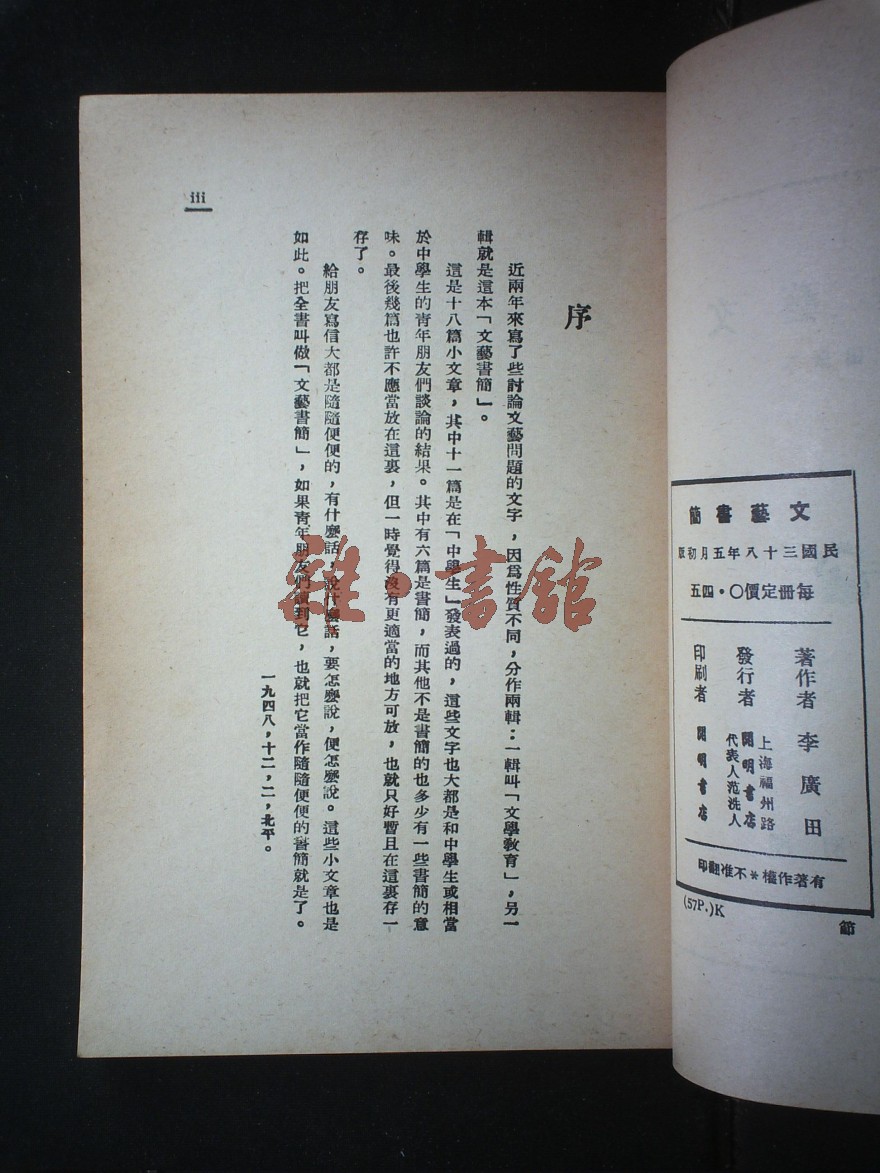 文藝書簡
民國三十八年五月初版
每冊定價〇·四五
著作者 李廣田
發行者
上海福州路
開明書店
代表人范洗人
印刷者 開明書店
有著作權＊不准翻印
(57P.)K
節
序
近兩年來寫了些討論文藝問題的文字，因爲性質不同，分作兩輯：一輯叫「文學教育」，另一
輯就是這本「文藝書簡」。
這是十八篇小文章，其中十一篇是在「中學生」發表過的，這些文字也大都是和中學生或相當
於中學生的青年朋友們談論的結果。其中有六篇是書簡，而其他不是書簡的也多少有一些書簡的意
味。最後幾篇也許不應當放在這裏，但一時覺得沒有更適當的地方可放，也就只好暫且在這裏存一
存了。
給朋友寫信大都是隨隨便便的，有什麼話，說什麼話，要怎麼說，便怎麼說。這些小文章也是
如此。把全書叫做「文藝書簡」，如果青年朋友們讀到它，也就把它當作隨隨便便的書簡就是了。
一九四八，十二，二，北平。
iii
雜·書館